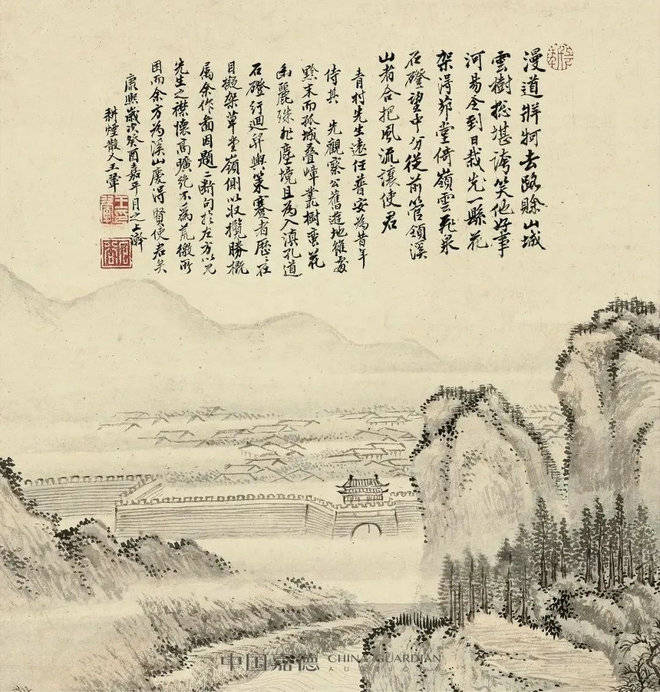 漫道牂牁去路賒山城
雲樹總堪誇笑他好事
河陽令到日栽先一縣花
架得茆堂倚嶺雲飛泉
石磴望中分從前管領溪
山者合把風流讓使君
青村先生遠任普安為昔年
侍其 先觀察公舊遊地雖處
黔末而孤城疊嶂叢樹蠻花
幽麗殊非塵境且為入滇孔道
石磴紆迴軒輿策蹇者歷歷在
目擬架草堂嶺側以收攬勝概
属余作啚因題二斷句於左方以見
先生之襟懷高曠絶不為荒徼所
困而余方為溪山慶得賢使君矣
康熙歲次癸酉嘉平月之上澣
耕煙散人王翬
中国嘉德 CHINA GUARDIAN